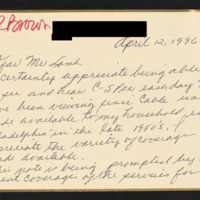 Brown
April 12, 1996
Dear Mr Lamb.
certainly appreciate being able
see and hear C-SPAN each day
ve been viewing since Cable was
de available to my household
adelphia in the late 1980's.
preciate the variety of coverage
de available.
note is being prompted by
ent coverage of the services for